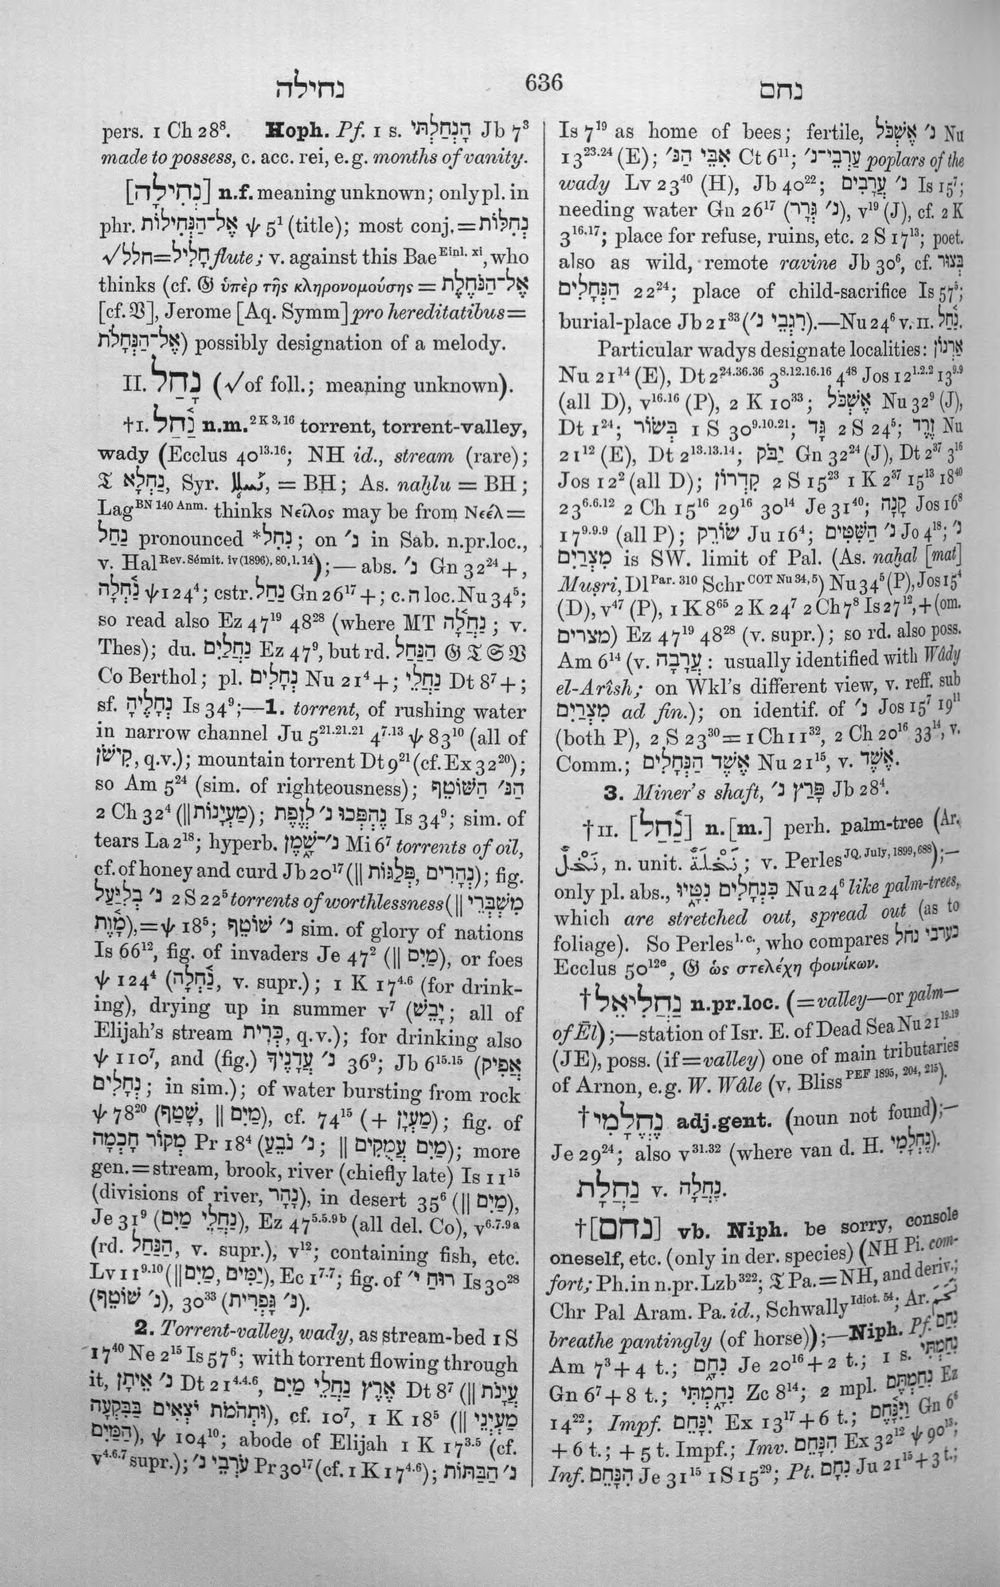 נחילה
636
נחם
pers. 1 Ch 28⁸. Hoph. Pf. 1 s. הָנְחַלְתִּי Jb 7³
made to possess, c. acc. rei, e.g. months of vanity.
[נְחִילָה] n.f. meaning unknown; only pl. in
phr. אֶל־הַנְּחִילוֹת ψ 5¹ (title); most conj. = נְחִלּוֹת
√חלל=חָלִיל flute; v. against this Bae Einl. xi, who
thinks (cf. 𝔊 ὑπὲρ τῆς κληρονομούσης = אֶל־הַנֹּחֶלֶת
[cf. 𝔙], Jerome [Aq. Symm] pro hereditatibus=
אֶל־הַנְּחָלֹת) possibly designation of a melody.
II. נחל (√of foll.; meaning unknown).
†I. נַ֫חַל n.m. 2 K 3, 16 torrent, torrent-valley,
wady (Ecclus 40¹³·¹⁶; NH id., stream (rare);
𝔗 נַחְלָא, Syr. = BH; As. naḫlu = BH;
Lag BN 140 Anm. thinks Νεῖλος may be from Νεέλ=
נחל pronounced *נְחֶל; on נ׳ in Sab. n.pr.loc.,
v. Hal Rev. Sémit. iv (1896), 80, 1. 14);—abs. נ׳ Gn 32²⁴ +,
נָ֫חְלָה ψ 124⁴; cstr. נַחַל Gn 26¹⁷ +; c. ה loc. Nu 34⁵;
so read also Ez 47¹⁹ 48²⁸ (where MT נַחֲלָה; v.
Thes); du. נַחֲלַיִם Ez 47⁹, but rd. הַנַּחַל 𝔊 𝔗 𝔖 𝔙
Co Berthol; pl. נְחָלִים Nu 21⁴ +; נַחֲלֵי Dt 8⁷ +;
sf. נְחָלֶיהָ Is 34⁹;—1. torrent, of rushing water
in narrow channel Ju 5²¹·²¹·²¹ 4⁷·¹³ ψ 83¹⁰ (all of
קִישׁוֹן, q.v.); mountain torrent Dt 9²¹ (cf. Ex 32²⁰);
so Am 5²⁴ (sim. of righteousness); הַנּ׳ הַשּׁוֹטֵף
2 Ch 32⁴ (||מַעְיָנוֹת); נֶהֶפְכוּ נ׳ לְזֶפֶת Is 34⁹; sim. of
tears La 2¹⁸; hyperb. נ׳־שֶׁמֶן Mi 6⁷ torrents of oil,
cf. of honey and curd Jb 20¹⁷ (||נְהָרִים, פְּלַגּוֹת); fig.
נ׳ בְלִיַּעַל 2 S 22⁵ torrents of worthlessness (||מִשְׁבְּרֵי
מָוֶת),=ψ 18⁵; נ׳ שׁוֹטֵף sim. of glory of nations
Is 66¹², fig. of invaders Je 47² (||מַיִם), or foes
ψ 124⁴ (נַ֫חְלָה, v. supr.); 1 K 17⁴·⁶ (for drink-
ing), drying up in summer v⁷ (יָבֵשׁ; all of
Elijah's stream כְּרִית, q.v.); for drinking also
ψ 110⁷, and (fig.) נ׳ עֲדָנֶיךָ 36⁹; Jb 6¹⁵·¹⁵ (אֲפִיק
נְחָלִים; in sim.); of water bursting from rock
ψ 78²⁰ (שָׁטַף, ||מַיִם), cf. 74¹⁵ (+ מַעְיָן); fig. of
מְקוֹר חָכְמָה Pr 18⁴ (נ׳ נֹבֵעַ; ||מַיִם עֲמֻקִּים); more
gen.=stream, brook, river (chiefly late) Is 11¹⁵
(divisions of river, נָהָר), in desert 35⁶ (||מַיִם),
Je 31⁹ (נַחֲלֵי מַיִם), Ez 47⁵·⁵·⁹ᵇ (all del. Co), v⁶·⁷·⁹ᵃ
(rd. הַנַּחַל, v. supr.), v¹²; containing fish, etc.
Lv 11⁹·¹⁰ (||מַיִם, יַמִּים), Ec 1⁷·⁷; fig. of רוּחַ י׳ Is 30²⁸
(נ׳ שׁוֹטֵף), 30³³ (נ׳ גָּפְרִית).
2. Torrent-valley, wady, as stream-bed 1 S
17⁴⁰ Ne 2¹⁵ Is 57⁶; with torrent flowing through
it, נ׳ אֵיתָן Dt 21⁴·⁴·⁶, אֶרֶץ נַחֲלֵי מַיִם Dt 8⁷ (||עֲיָנֹת
וּתְהֹמֹת יֹצְאִים בַּבִּקְעָה), cf. 10⁷, 1 K 18⁵ (||מַעְיְנֵי
הַמַּיִם), ψ 104¹⁰; abode of Elijah 1 K 17³·⁵ (cf.
v⁴·⁶·⁷ supr.); עֹרְבֵי נ׳ Pr 30¹⁷ (cf. 1 K 17⁴·⁶); נ׳ הַבַּתּוֹת
Is 7¹⁹ as home of bees; fertile, נ׳ אֶשְׁכֹּל Nu
13²³·²⁴ (E); אִבֵּי הַנּ׳ Ct 6¹¹; עַרְבֵי־נ׳ poplars of the
wady Lv 23⁴⁰ (H), Jb 40²²; נ׳ עֲרָבִים Is 15⁷;
needing water Gn 26¹⁷ (נ׳ גְּרָר), v¹⁹ (J), cf. 2 K
3¹⁶·¹⁷; place for refuse, ruins, etc. 2 S 17¹³; poet.
also as wild, remote ravine Jb 30⁶, cf. בְּצוּר
הַנְּחָלִים 22²⁴; place of child-sacrifice Is 57⁵;
burial-place Jb 21³³ (רִגְבֵי נ׳).—Nu 24⁶ v. II. נַחַל.
Particular wadys designate localities: אַרְנוֹן
Nu 21¹⁴ (E), Dt 2²⁴·³⁶·³⁶ 3⁸·¹²·¹⁶·¹⁶ 4⁴⁸ Jos 12¹·²·² 13⁹·⁹
(all D), v¹⁶·¹⁶ (P), 2 K 10³³; אֶשְׁכֹּל Nu 32⁹ (J),
Dt 1²⁴; בְּשׂוֹר 1 S 30⁹·¹⁰·²¹; גָּד 2 S 24⁵; זֶרֶד Nu
21¹² (E), Dt 2¹³·¹³·¹⁴; יַבֹּק Gn 32²⁴ (J), Dt 2³⁷ 3¹⁶
Jos 12² (all D); קִדְרוֹן 2 S 15²³ 1 K 2³⁷ 15¹³ 18⁴⁰
23⁶·⁶·¹² 2 Ch 15¹⁶ 29¹⁶ 30¹⁴ Je 31⁴⁰; קָנָה Jos 16⁸
17⁹·⁹·⁹ (all P); שׂוֹרֵק Ju 16⁴; נ׳ הַשִּׁטִּים Jo 4¹⁸; נ׳
מִצְרַיִם is SW. limit of Pal. (As. naḥal [mat]
Muṣri, Dl Par. 310 Schr COT Nu 34, 5) Nu 34⁵ (P), Jos 15⁴
(D), v⁴⁷ (P), 1 K 8⁶⁵ 2 K 24⁷ 2 Ch 7⁸ Is 27¹², + (om.
מצרים) Ez 47¹⁹ 48²⁸ (v. supr.); so rd. also poss.
Am 6¹⁴ (v. עֲרָבָה: usually identified with Wâdy
el-Arîsh; on Wkl's different view, v. reff. sub
מִצְרַיִם ad fin.); on identif. of נ׳ Jos 15⁷ 19¹¹
(both P), 2 S 23³⁰=1 Ch 11³², 2 Ch 20¹⁶ 33¹⁴, v.
Comm.; אֶשֶׁד הַנְּחָלִים Nu 21¹⁵, v. אֶשֶׁד.
3. Miner's shaft, פָּרַץ נ׳ Jb 28⁴.
†II. [נַ֫חַל] n.[m.] perh. palm-tree (Ar.
نَخْلٌ, n. unit. نَخْلَةٌ; v. Perles JQ, July, 1899, 688);—
only pl. abs., כִּנְחָלִים נִטָּיוּ Nu 24⁶ like palm-trees,
which are stretched out, spread out (as to
foliage). So Perles l. c., who compares כערבי נחל
Ecclus 50¹²ᵉ, 𝔊 ὡς στελέχη φοινίκων.
†נַחֲלִיאֵל n.pr.loc. (=valley—or palm—
of Ēl);—station of Isr. E. of Dead Sea Nu 21¹⁹·¹⁹
(JE), poss. (if=valley) one of main tributaries
of Arnon, e.g. W. Wâle (v. Bliss PEF 1895, 204, 215).
†נֶחֱלָמִי adj.gent. (noun not found);—
Je 29²⁴; also v³¹·³² (where van d. H. נֶחְלָמִי).
נַחֲלָת v. נַחֲלָה.
†[נחם] vb. Niph. be sorry, console
oneself, etc. (only in der. species) (NH Pi. com-
fort; Ph. in n.pr. Lzb³²²; 𝔗 Pa.=NH, and deriv.;
Chr Pal Aram. Pa. id., Schwally Idiot. 54; Ar.
breathe pantingly (of horse));—Niph. Pf. נִחַם
Am 7³ + 4 t.; נִחָם Je 20¹⁶ + 2 t.; 1 s. נִחַמְתִּי
Gn 6⁷ + 8 t.; נִחָמְתִּי Zc 8¹⁴; 2 mpl. נִחַמְתֶּם Ez
14²²; Impf. יִנָּחֵם Ex 13¹⁷ + 6 t.; וַיִּנָּחֶם Gn 6⁶
+ 6 t.; + 5 t. Impf.; Imv. הִנָּחֵם Ex 32¹² ψ 90¹³;
Inf. הִנָּחֵם Je 31¹⁵ 1 S 15²⁹; Pt. נִחָם Ju 21¹⁵ + 3 t.;